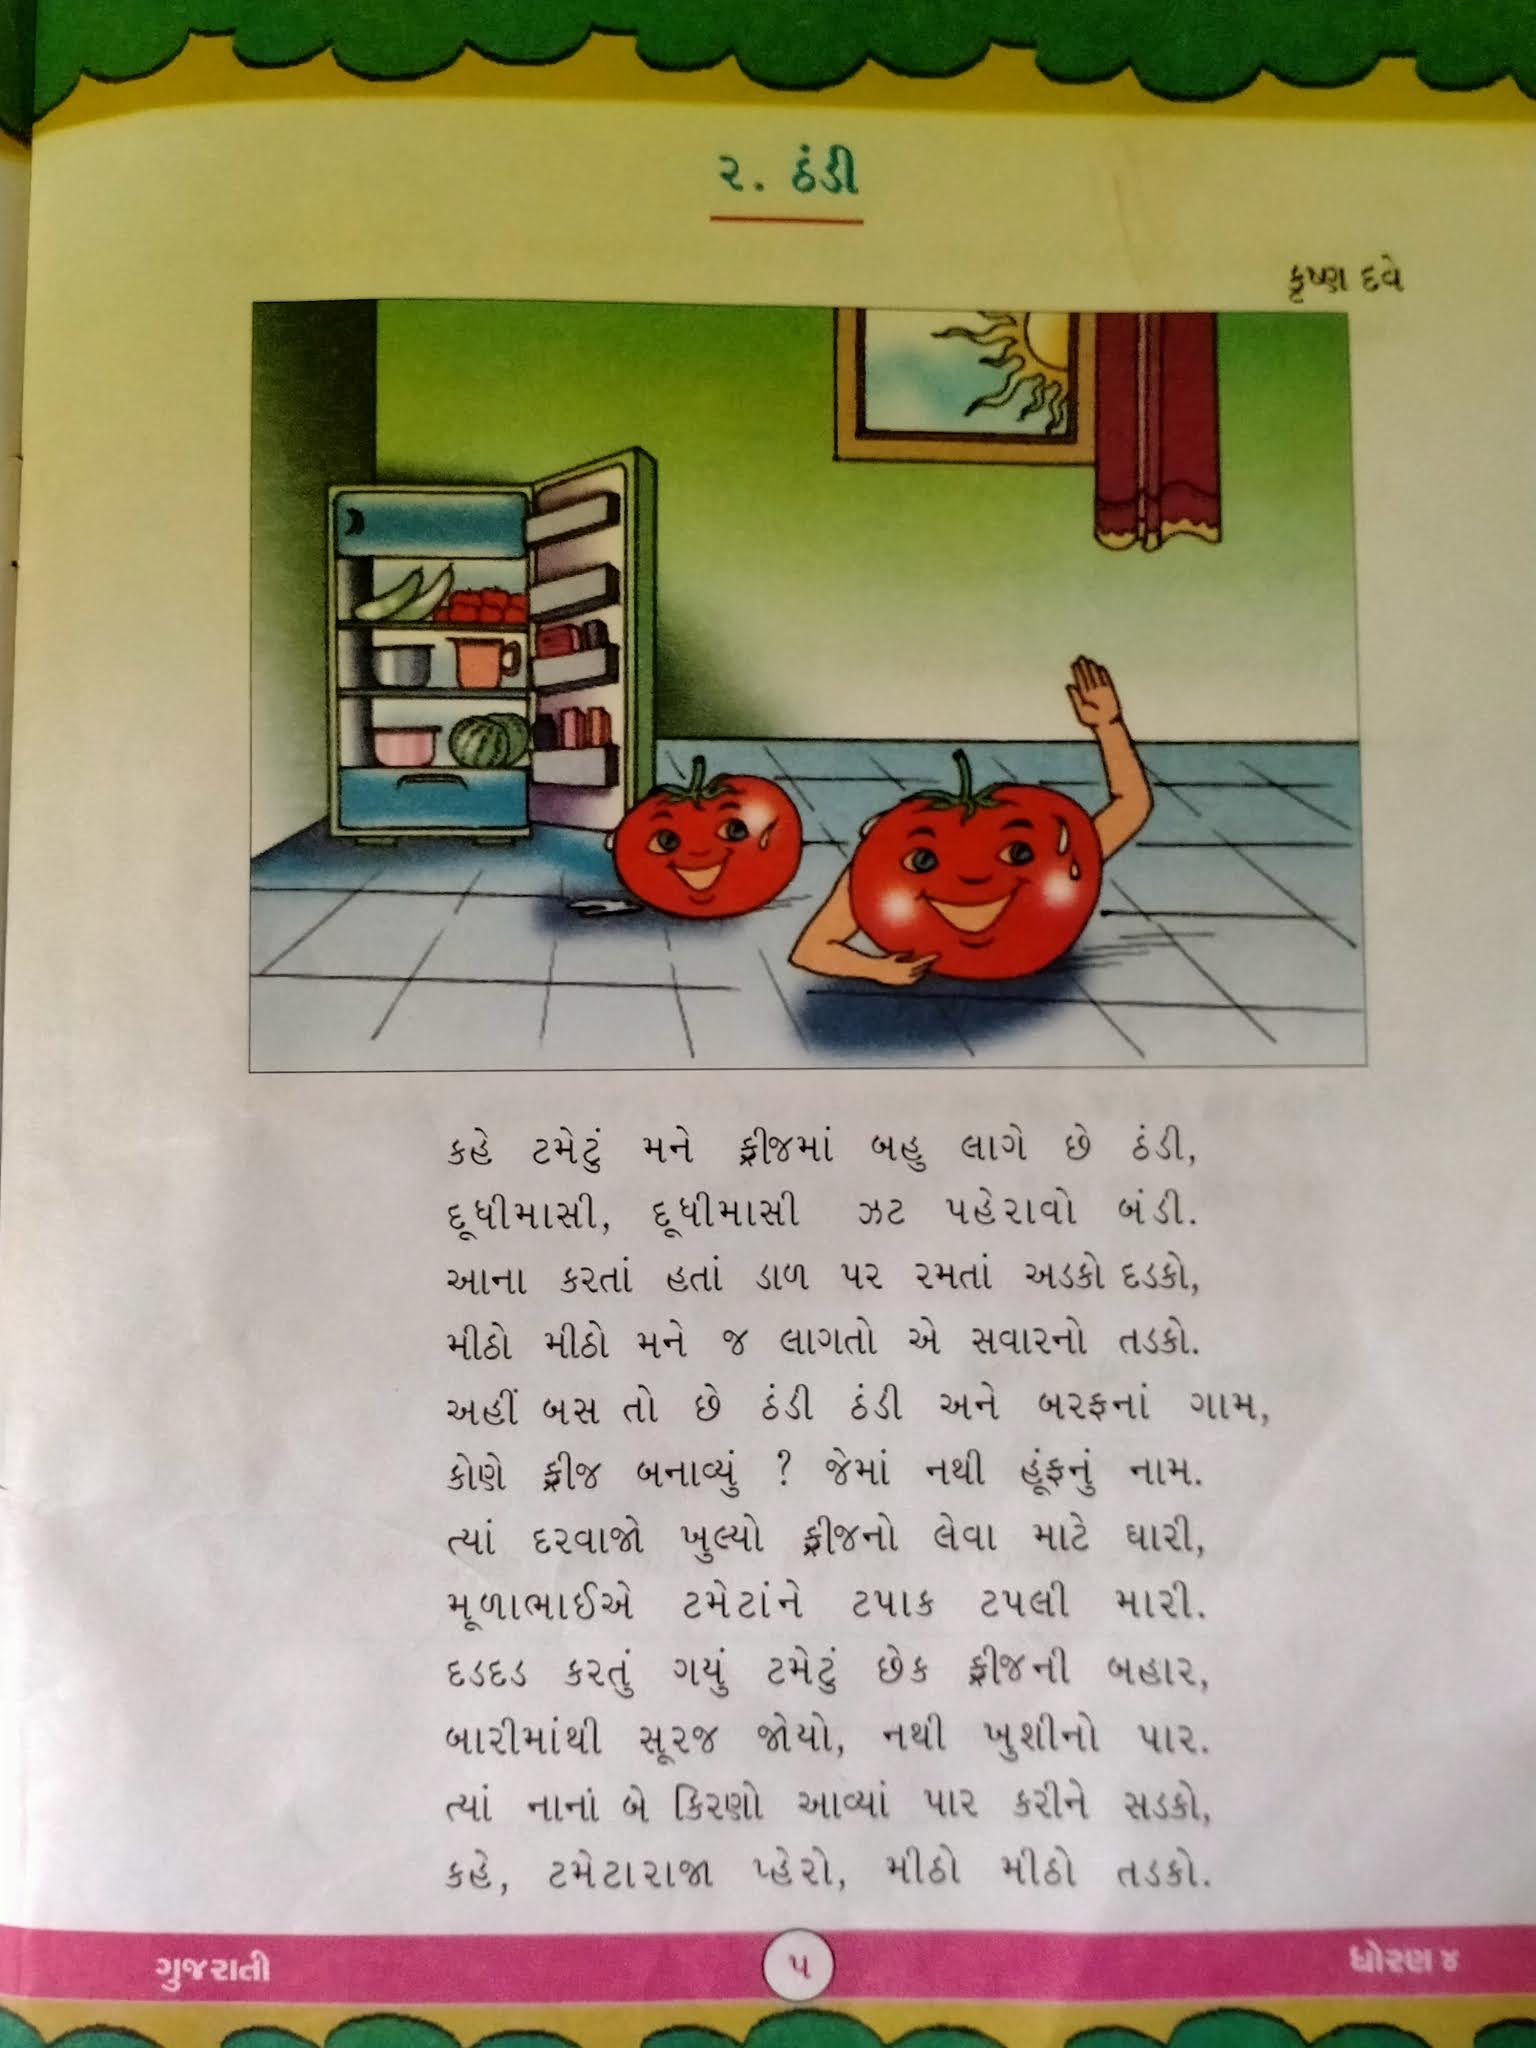 ૨. ઠંડી
કૃષ્ણ દવે
કહે ટમેટું મને ફ્રીજમાં બહુ લાગે છે ઠંડી,
દૂધીમાસી, દૂધીમાસી ઝટ પહેરાવો બંડી.
આના કરતાં હતાં ડાળ પર રમતાં અડકો દડકો,
મીઠો મીઠો મને જ લાગતો એ સવારનો તડકો.
અહીં બસ તો છે ઠંડી ઠંડી અને બરફનાં ગામ,
કોણે ફ્રીજ બનાવ્યું ? જેમાં નથી હૂંફનું નામ.
ત્યાં દરવાજો ખુલ્યો ફ્રીજનો લેવા માટે ઘારી,
મૂળાભાઈએ ટમેટાંને ટપાક ટપલી મારી.
દડદડ કરતું ગયું ટમેટું છેક ફ્રીજની બહાર,
બારીમાંથી સૂરજ જોયો, નથી ખુશીનો પાર.
ત્યાં નાનાં બે કિરણો આવ્યાં પાર કરીને સડકો,
કહે, ટમેટારાજા પ્હેરો, મીઠો મીઠો તડકો.
ગુજરાતી ૫ ધોરણ ૪